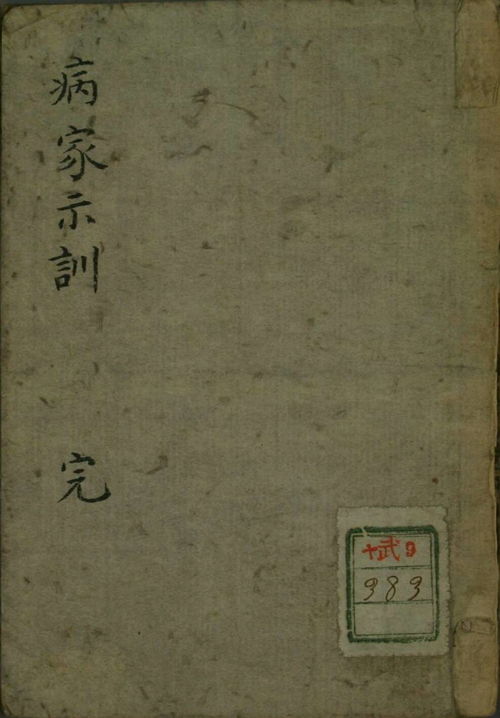 病家示訓 完
十武9
983